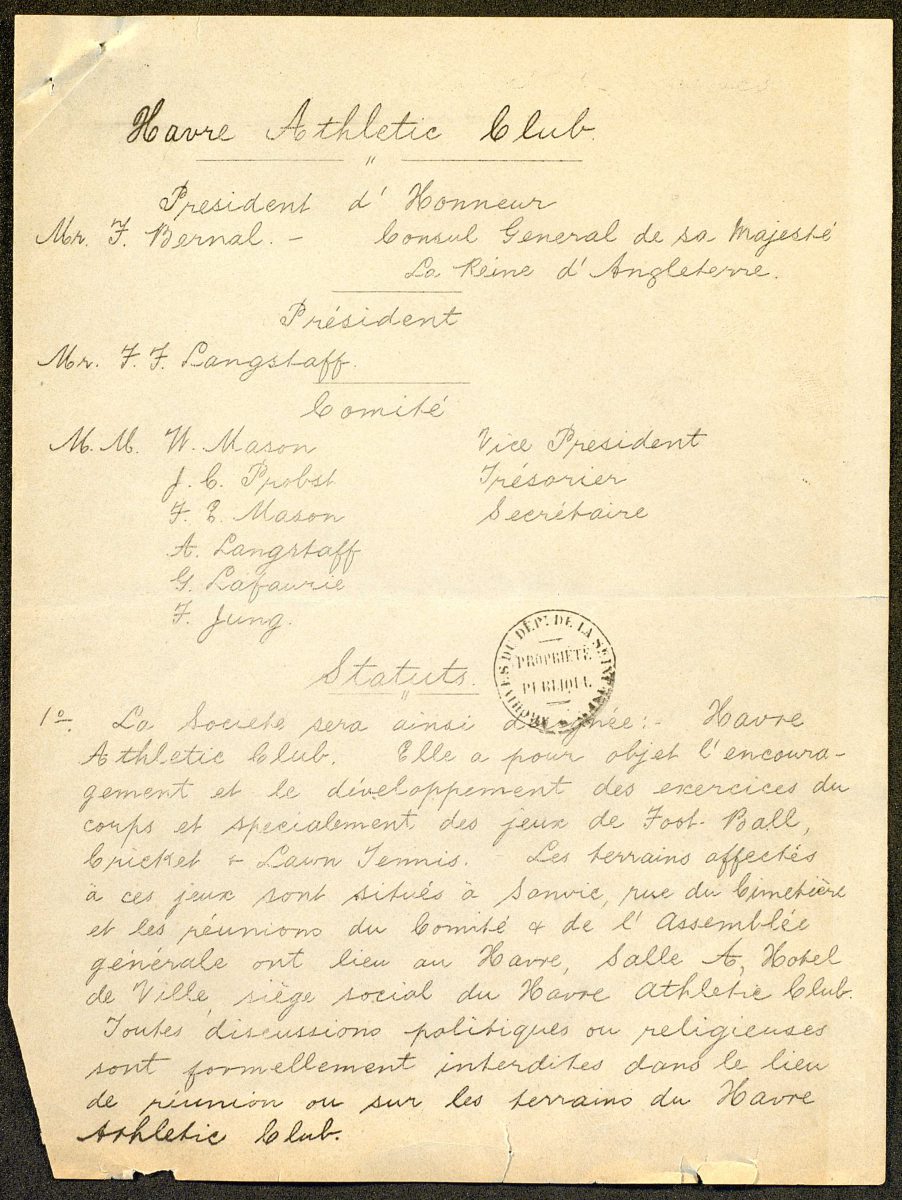 Havre Athletic Club.
"
President d'Honneur
Mr. F. Bernal. - Consul General de sa Majesté
La Reine d'Angleterre.
Président
Mr. F. F. Langstaff.
Comité
M.M. W. Mason Vice President
J. C. Probst Trésorier
F. E. Mason Secrétaire
A. Langstaff
G. Lafaurie
F. Jung.
Statuts.
"
ARCHIVES DU DÉPT. DE LA SEINE
PROPRIÉTÉ
PUBLIQUE
1o. La Societé sera ainsi désignée:- Havre
Athletic Club. Elle a pour objet l'encoura-
gement et le développement des exercices du
corps et specialement des jeux de Foot-Ball,
Cricket & Lawn Tennis. - Les terrains affectés
à ces jeux sont situés à Sanvic, rue du Cimetière
et les réunions du Comité & de l'Assemblée
générale ont lieu au Havre, Salle A, Hotel
de Ville, siège social du Havre Athletic Club.
Toutes discussions politiques ou religieuses
sont formellement interdites dans le lieu
de réunion ou sur les terrains du Havre
Athletic Club.